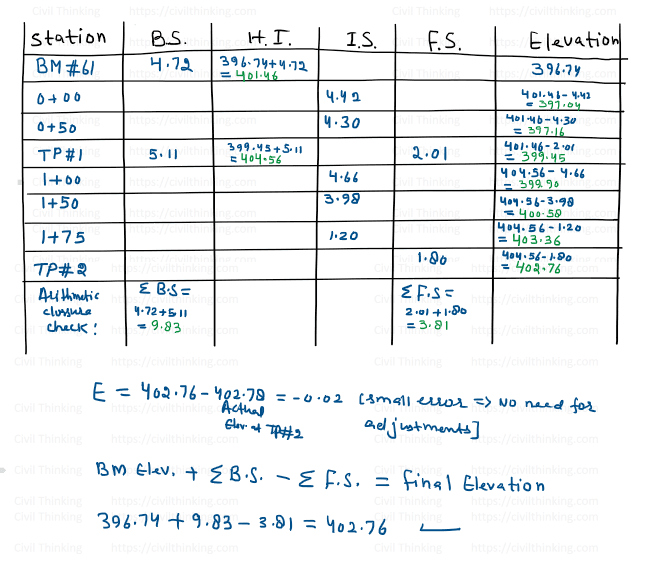 Station B.S. H.I. I.S. F.S. Elevation
BM#61 4.72 396.74+4.72 396.74
= 401.46
0+00 4.42 401.46-4.42
= 397.04
0+50 4.30 401.46-4.30
= 397.16
TP#1 5.11 399.45+5.11 2.01 401.46-2.01
= 404.56 = 399.45
1+00 4.66 404.56-4.66
= 399.90
1+50 3.98 404.56-3.98
= 400.58
1+75 1.20 404.56-1.20
= 403.36
TP#2 1.80 404.56-1.80
= 402.76
Arithmetic Σ B.S = Σ F.S =
closure 4.72+5.11 2.01+1.80
check: = 9.83 = 3.81
E = 402.76-402.78 = -0.02 [small error => No need for
Actual adjustments]
Elev. at TP#2
BM Elev. + Σ B.S. - Σ F.S. = final Elevation
396.74 + 9.83 - 3.81 = 402.76
Civil Thinking https://civilthinking.com/